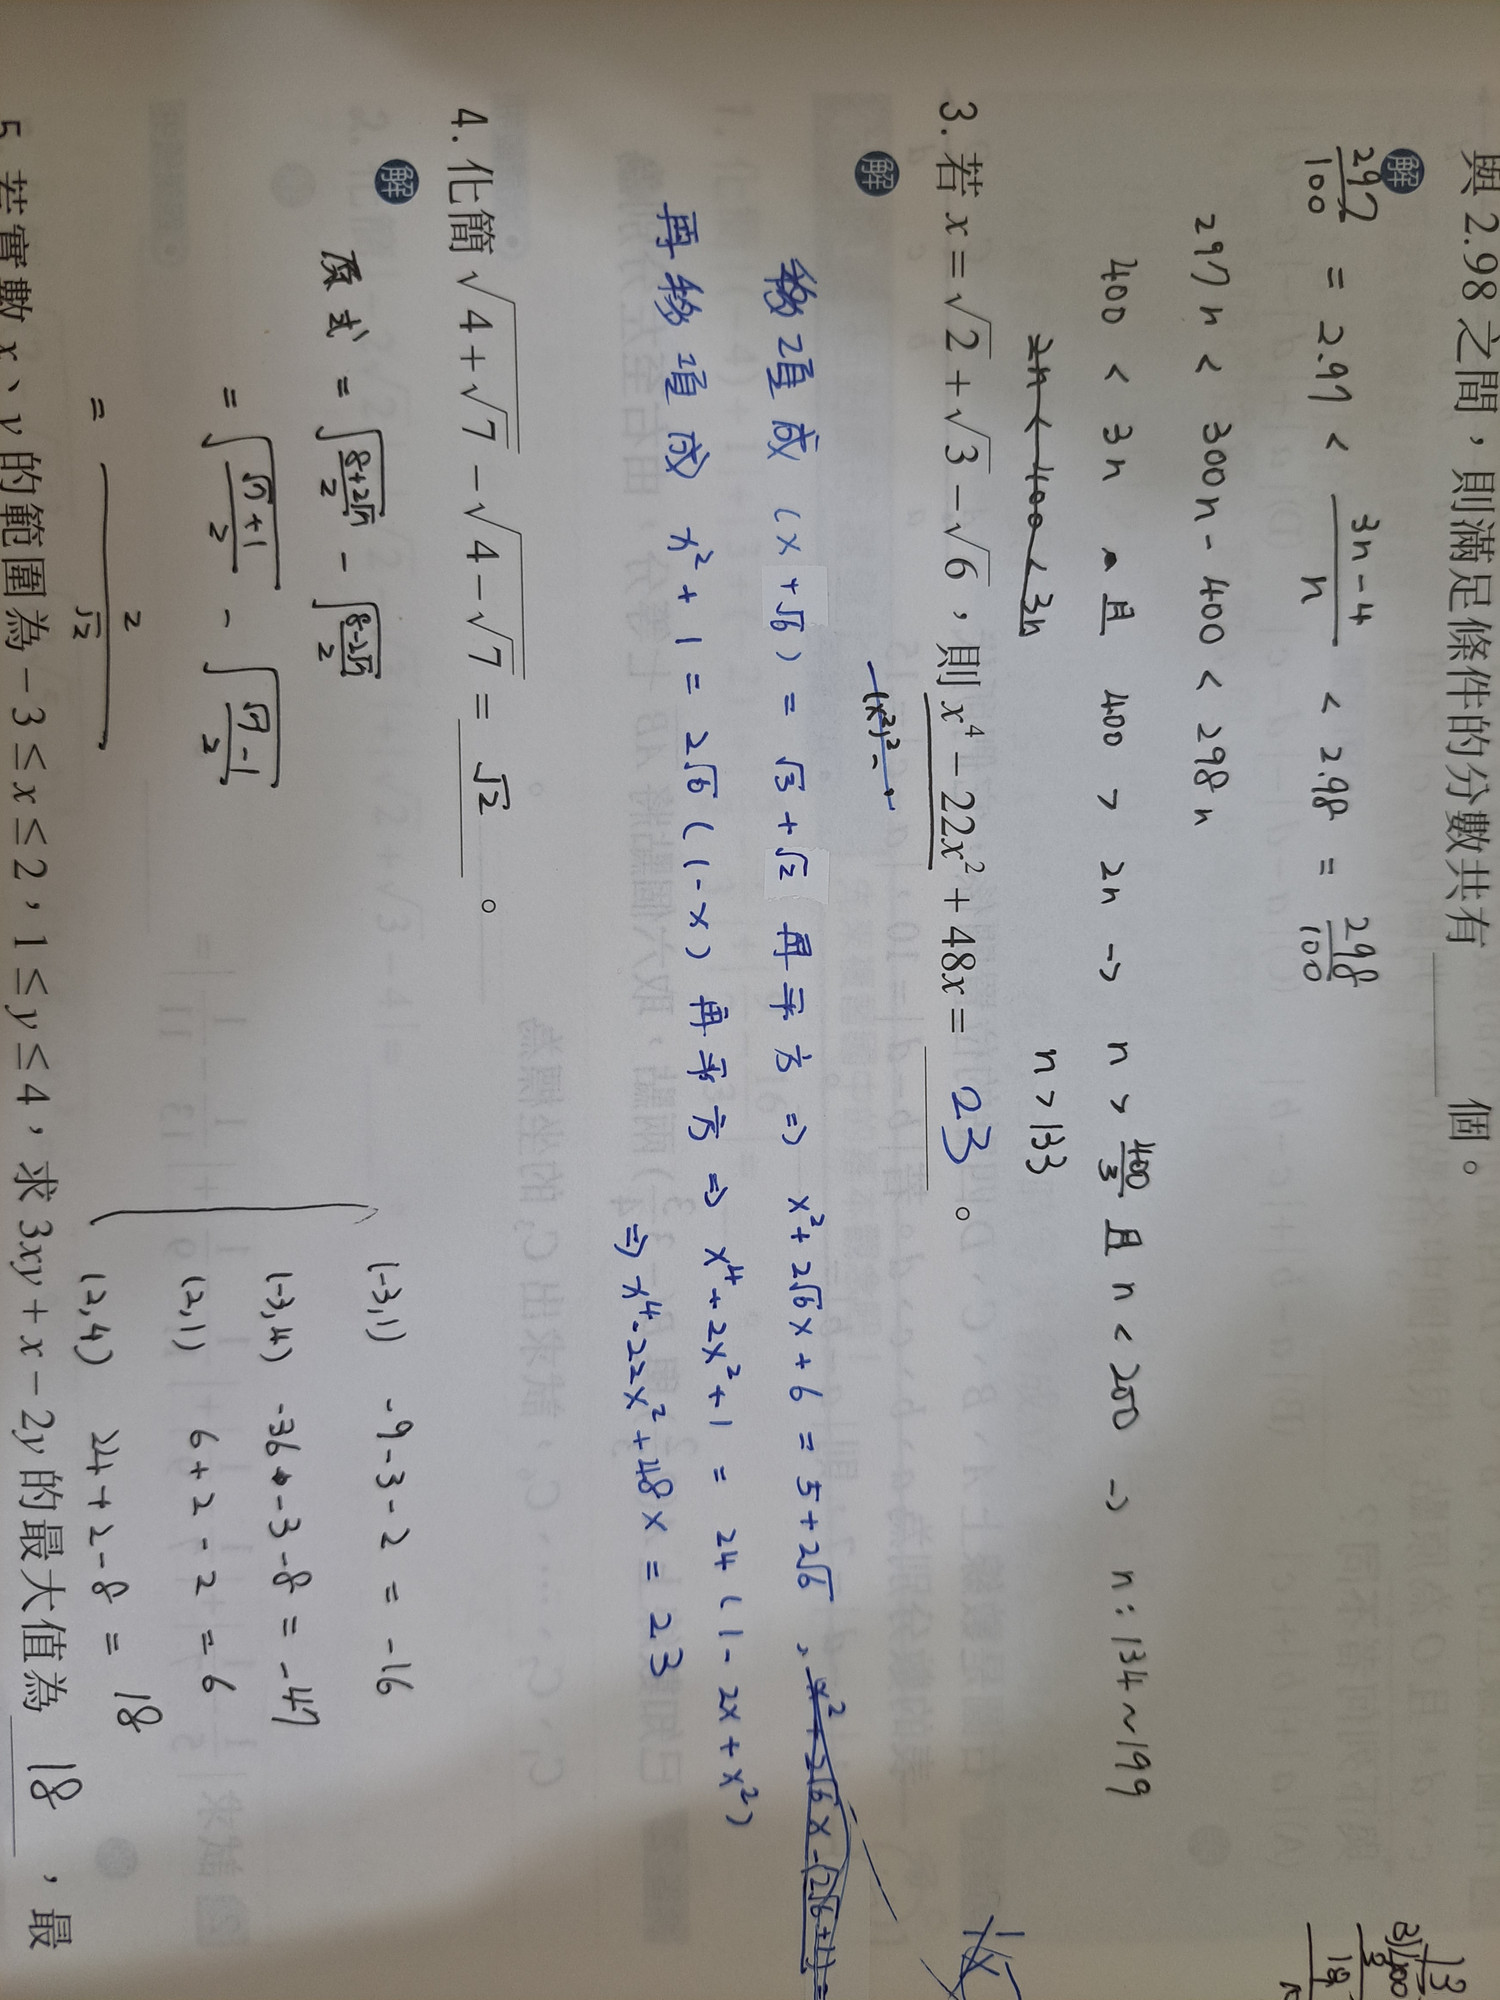 與 2.98 之間，則滿足條件的分數共有______個。
解
297/100 = 2.97 < (3n-4)/n < 2.98 = 298/100
297n < 300n - 400 < 298n
400 < 3n 且 400 > 2n → n > 400/3 且 n < 200 → n : 134 ~ 199
2n < 400 < 3n
n > 133
3. 若 x = √2 + √3 - √6，則 x⁴ - 22x² + 48x = 23。
解
(x²)² -
移項成 (x + √6) = √3 + √2 再平方 ⇒ x² + 2√6x + 6 = 5 + 2√6、x² + 2√6x - (2√6+1) =
再移項成 x² + 1 = 2√6 (1-x) 再平方 ⇒ x⁴ + 2x² + 1 = 24 (1 - 2x + x²)
⇒ x⁴ - 22x² + 48x = 23
4. 化簡 √(4+√7) - √(4-√7) = √2。
解
原式 = √((8+2√7)/2) - √((8-2√7)/2)
= √((√7+1)/2) - √((√7-1)/2)
= 2/√2
(-3,1) -9-3-2 = -16
(-3,4) -36-3-8 = -47
(2,1) 6+2-2 = 6
(2,4) 24+2-8 = 18
5. 若實數 x、y 的範圍為 -3 ≤ x ≤ 2，1 ≤ y ≤ 4，求 3xy + x - 2y 的最大值為 18，最